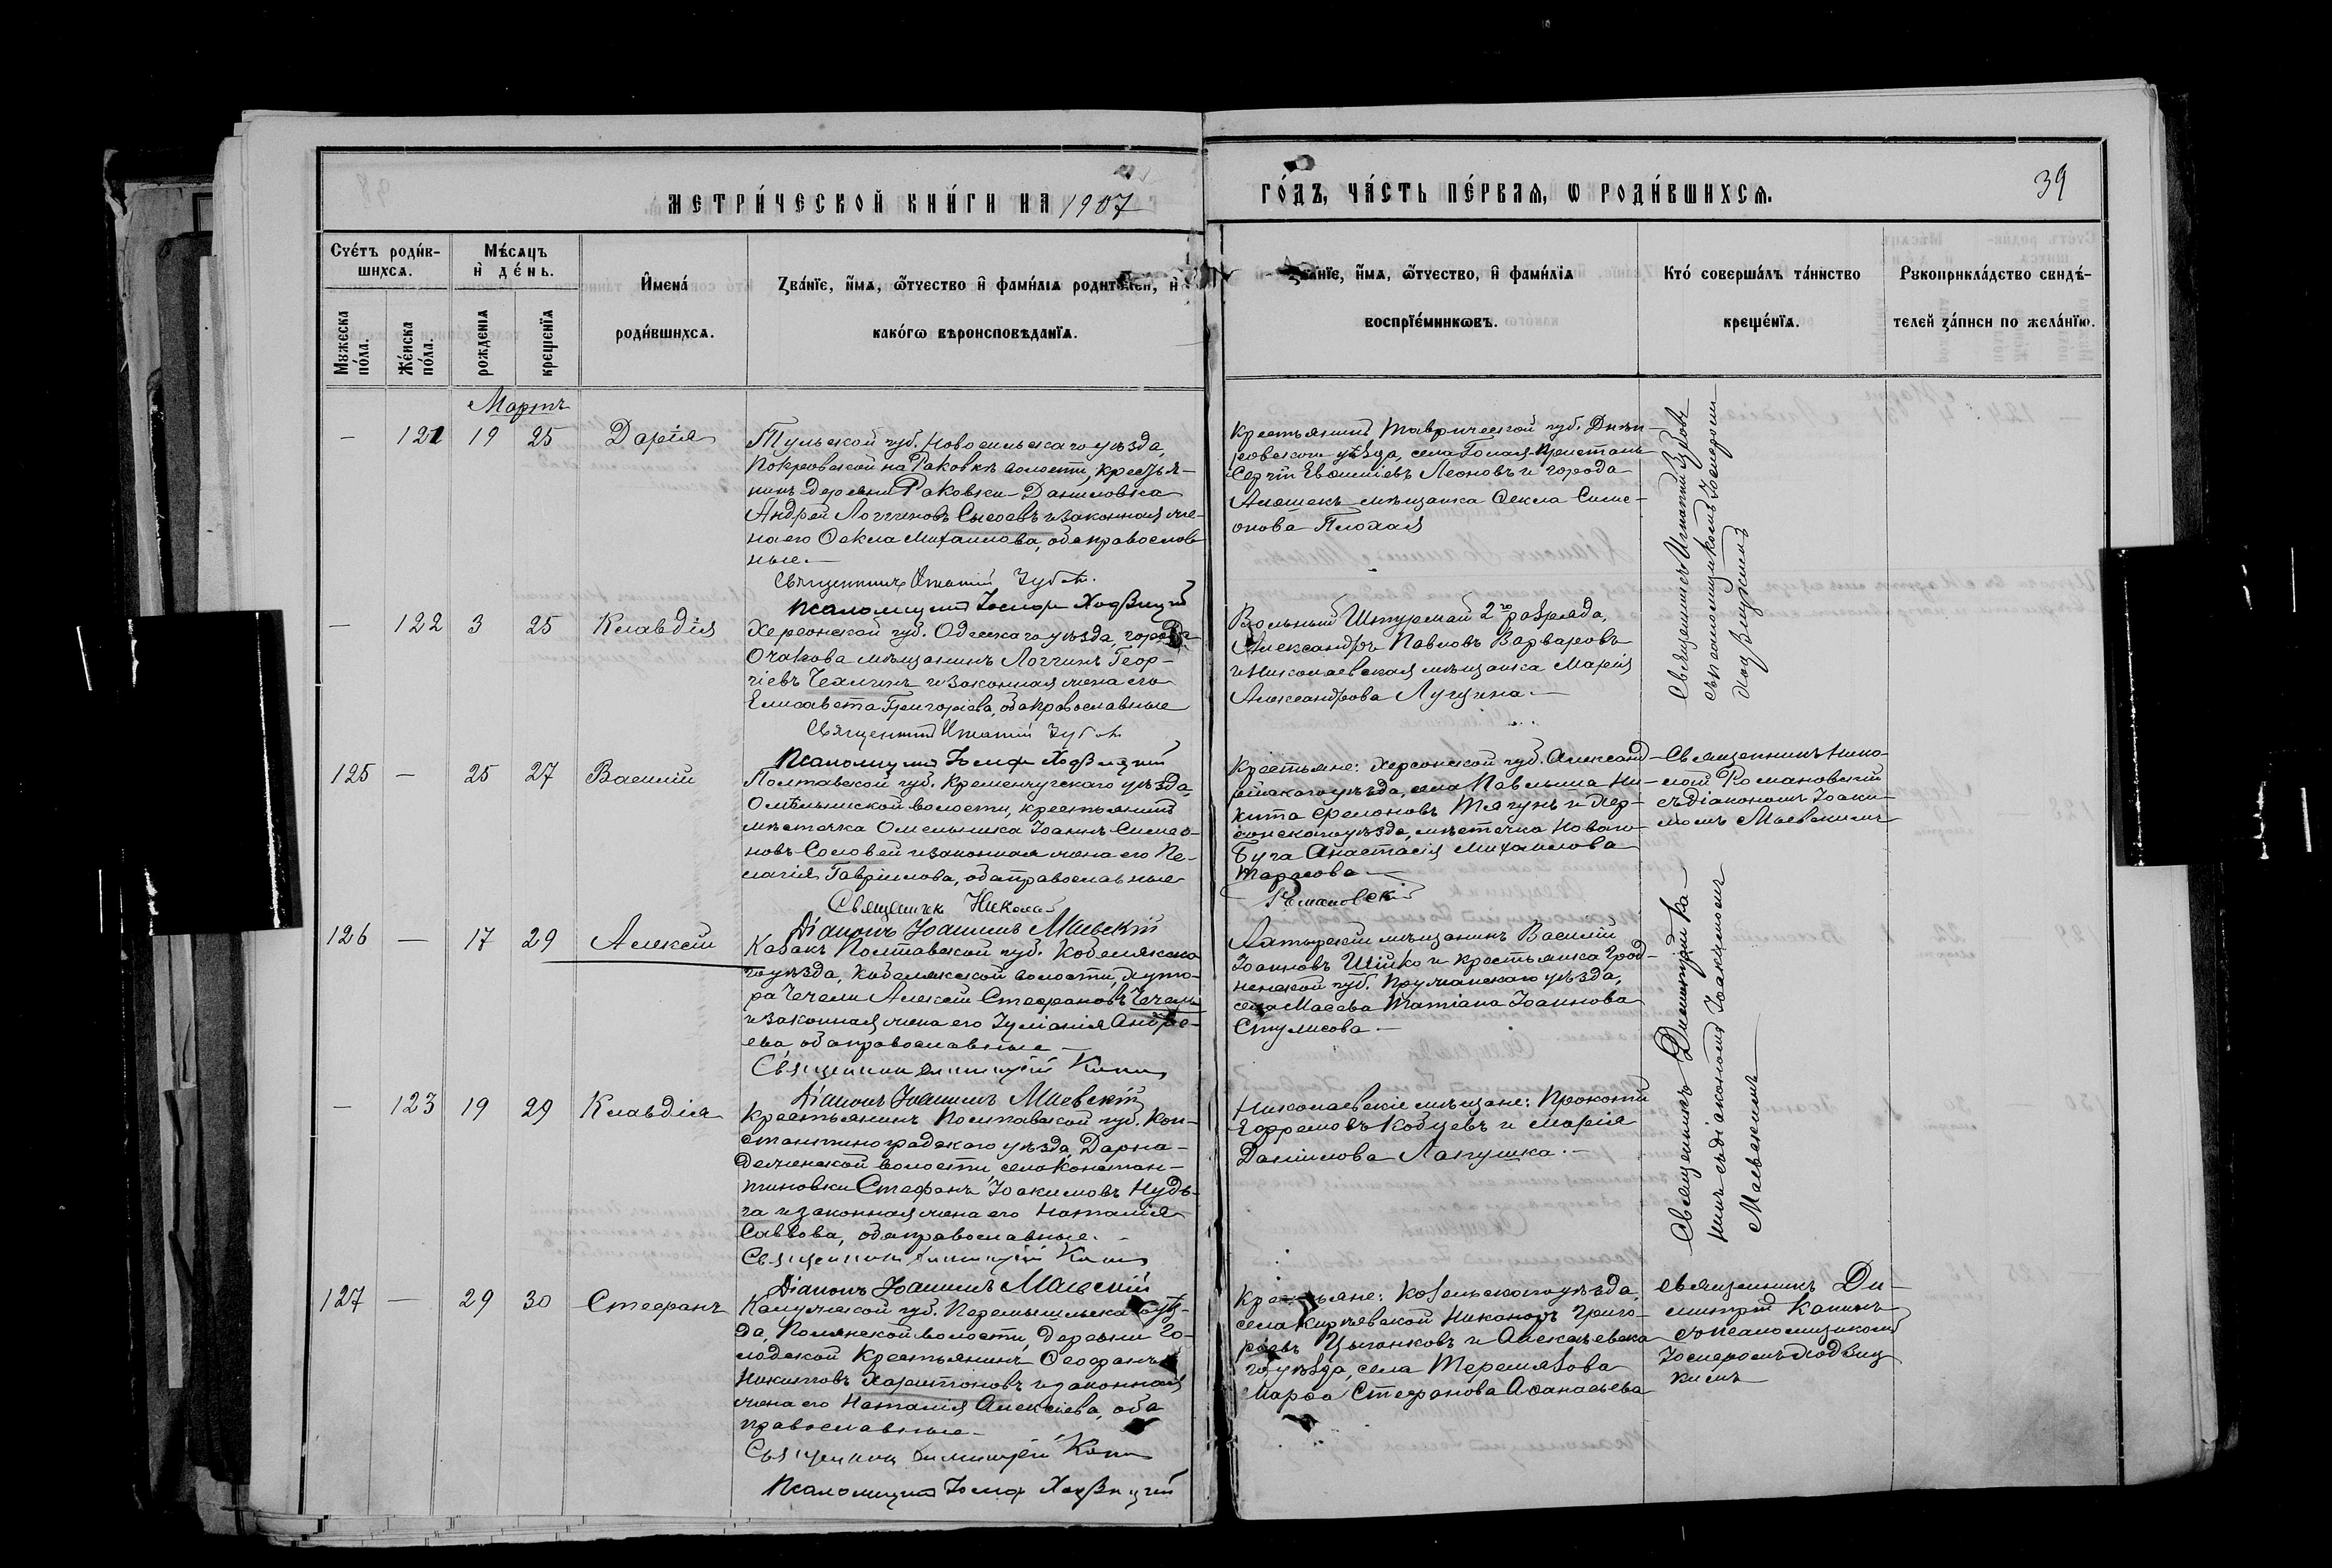 МЕТРИ́ЧЕСКОЙ КНИ́ГИ НА 1907
ГО́ДЪ, ЧА́СТЬ ПЕ́РВАЯ, Ѡ РОДИ́ВШИХСЯ.
39
Сче́тъ роди́в-
шихся.
Мѣ́сяцъ
и де́нь.
Мужеска по́ла.
Же́нска по́ла.
рожде́нія
креще́нія
Имена́
роди́вшихся.
Зва́нїе, и́мя, ѻ́тчество и фами́лїя родителей, и
како́гѡ вѣроисповѣ́данїя.
Зва́нїе, и́мя, ѻ́тчество, и фами́лїя
воспрїе́мниковъ.
Кто́ соверша́лъ та́инство
креще́нїя.
Рукоприкла́дство свидѣ́-
телей за́писи по жела́нїю.
Мартъ
— 121 19 25 Дарія
Тульской губ. Новосильскаго уѣзда,
Покровской на Раковкѣ волости, крестья-
нинъ деревни Раковки-Даниловка
Андрей Логгиновъ Сысоевъ и законная же-
на его Ѳекла Михаилова, оба православ
ные.—
Священникъ Игнатій Зубовъ.
Псаломщикъ Іосифъ Ходзицкій
Крестьянинъ Таврической губ. Днѣп-
ровскаго уѣзда, села Голая-Пристань
Сергій Евѳиміевъ Леоновъ и города
Алешекъ мѣщанка Ѳекла Симе-
онова Плохая
Священникъ Игнатій Зубовъ
съ псаломщикомъ Іосифомъ
Ходзицкимъ
— 122 3 25 Клавдія
Херсонской губ. Одесскаго уѣзда, города
Очакова мѣщанинъ Логгинъ Геор-
гіевъ Чехлинъ и законная жена его
Елисавета Григоріева, оба православные
Священникъ Игнатій Зубовъ
Псаломщикъ Іосифъ Ходзицкій
Вольный Штурман 2го разряда,
Александръ Павловъ Варваровъ
и Николаевская мѣщанка Марія
Александрова Лущина.—
125 — 25 27 Василій
Полтавской губ. Кременчугскаго уѣзда,
Омельницкой волости, крестьянинъ
мѣстечка Омельника Іоаннъ Симео-
новъ Соловей и законная жена его Пе-
лагія Гавріилова, оба православные
Священникъ Николай
Романовскій
Діаконъ Іоакимъ Маевскій
Крестьяне: Херсонской губ. Александ-
рійскаго уѣзда, села Павлыша Ни-
кита Филоновъ Тягунъ и Хер-
сонскаго уѣзда, мѣстечка Новаго-
Буга Анастасія Михаилова
Тарасова—
Священникъ Нико-
лай Романовскій
съ діакономъ Іоаки-
момъ Маевскимъ
126 — 17 29 Алексій
Казакъ Полтавской губ. Кобелякска
го уѣзда, Кобелякской волости, хуто-
ра Чечели Алексій Стефановъ Чечель
и законная жена его Іуліанія Андре-
ева, оба православные—
Священникъ Димитрій Капинъ
Діаконъ Іоакимъ Маевскій
Ахтырскій мѣщанинъ Василій
Іоанновъ Шійко и крестьянка Грод-
ненской губ. Пружанскаго уѣзда,
села Масева Татіана Іоаннова
Стулисова—
Священникъ Димитрій Ка-
пинъ съ діакономъ Іоакимомъ
Маевскимъ
— 123 19 29 Клавдія
Крестьянинъ Полтавской губ. Кон-
стантиноградскаго уѣзда, Дарна-
деженской волости села Констан-
тиновки Стефанъ Іоакимовъ Нудь-
га и законная жена его Наталія
Саввова, оба православные.—
Священникъ Димитрій Капинъ
Діаконъ Іоакимъ Маевскій
Николаевскіе мѣщане: Прокопій
Ефремовъ Кобцевъ и Марія
Даніилова Лапушка.—
127 — 29 30 Стефанъ
Калужской губ. Перемышльскаго уѣз-
да, Полянской волости, деревни Го-
лодской Крестьянинъ Ѳеофанъ
Никитовъ Харитоновъ и законная
жена его Наталія Алексіева, оба
православные—
Священникъ Димитрій Капинъ
Псаломщикъ Іосифъ Ходзицкій
Крестьяне: Козельскаго уѣзда,
села Кирѣевской Никаноръ Григо-
ріевъ Цыганковъ и Алексѣевска
го уѣзда, села
Марѳа Стефанова Аѳанасьева
священникъ Ди-
митрій Капинъ
съ псаломщикомъ
Іосифомъ Ходзиц
кимъ